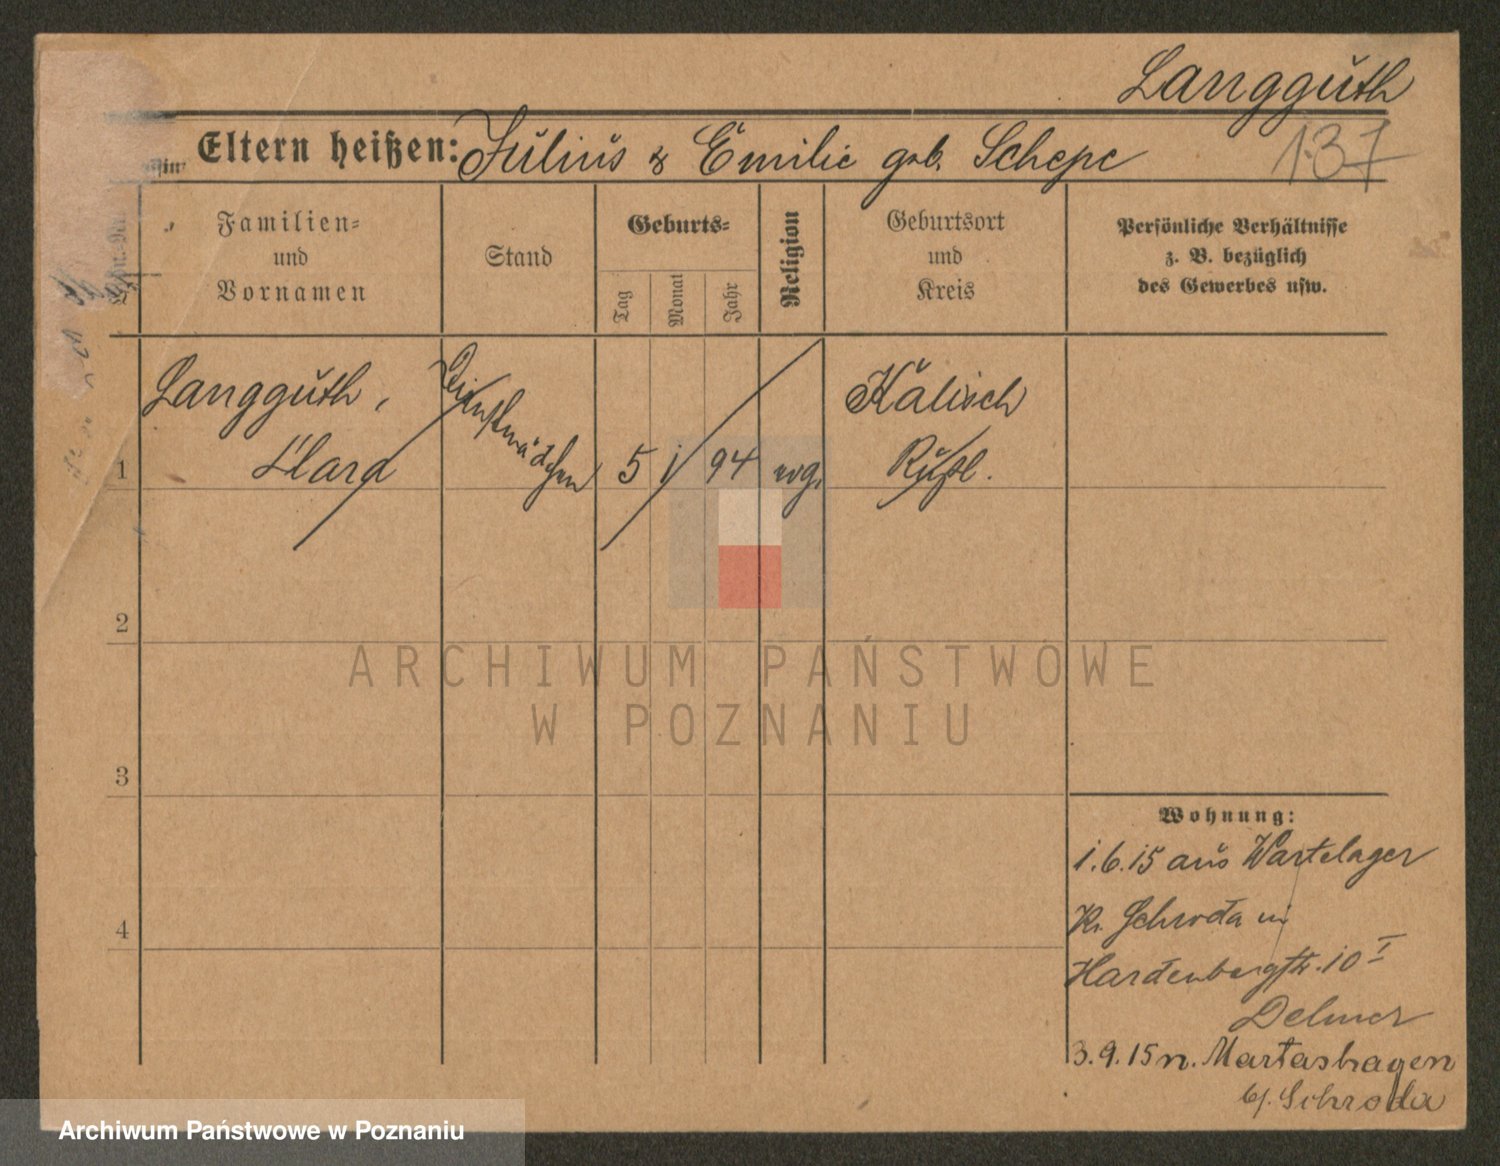 Langguth
137
Eltern heißen: Julius & Emilie geb. Schepe
Familien=
und
Vornamen
Stand
Geburts=
Tag
Monat
Jahr
Religion
Geburtsort
und
Kreis
Persönliche Verhältnisse
z. B. bezüglich
des Gewerbes usw.
1
Langguth,
Clara
Dienstmädchen
5 1 94
evg.
Kalisch
Rußl.
2
3
4
ARCHIWUM PAŃSTWOWE
W POZNANIU
Wohnung:
1.6.15 aus Wartelager
Kr. Schroda in
Hardenbergstr. 10 I
Delmer
3.9.15 n. Martashagen
b/. Schroda
Archiwum Państwowe w Poznaniu